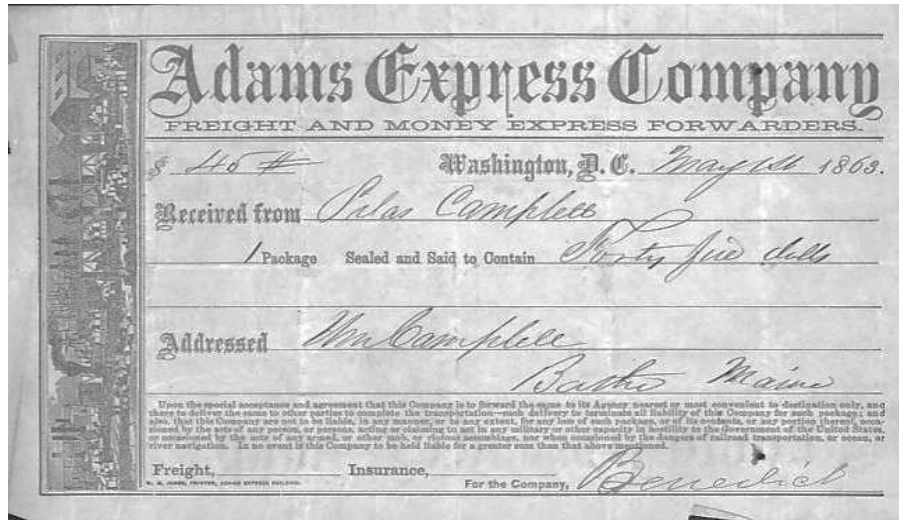 Adams Express Company
FREIGHT AND MONEY EXPRESS FORWARDERS.
$ 45 # Washington, D. C. May 1st 1863.
Received from Silas Campbell
1 Package Sealed and Said to Contain Forty five dolls
Addressed Wm Campbell
Bath Maine
Upon the special acceptance and agreement that this Company is to forward the same to its Agency nearest or most convenient to destination only, and
there to deliver the same to other parties to complete the transportation—such delivery to terminate all liability of this Company for such package; and
also, that this Company are not to be liable, in any manner, or to any extent, for any loss of such package, or of its contents, or any portion thereof, occa-
sioned by the acts of any person, or persons, acting or claiming to act in any military or other capacity in hostility to the Government of the United States,
or occasioned by the acts of any armed, or other mob, or riotous assemblage, nor when occasioned by the dangers of railroad transportation, or ocean, or
river navigation. In no event is this Company to be held liable for a greater sum than that above mentioned.
Freight, Insurance,
For the Company, Benedict
PRINTER, ADAMS EXPRESS BUILDING.